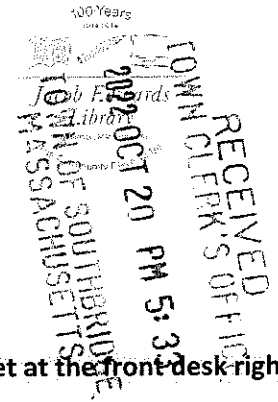 100 Years
Jacob F. Edwards
Library
RECEIVED
TOWN CLERK'S OFFICE
2022 OCT 20 PM 5:3
TOWN OF SOUTHBRIDGE
MASSACHUSETTS
et at the front desk righ